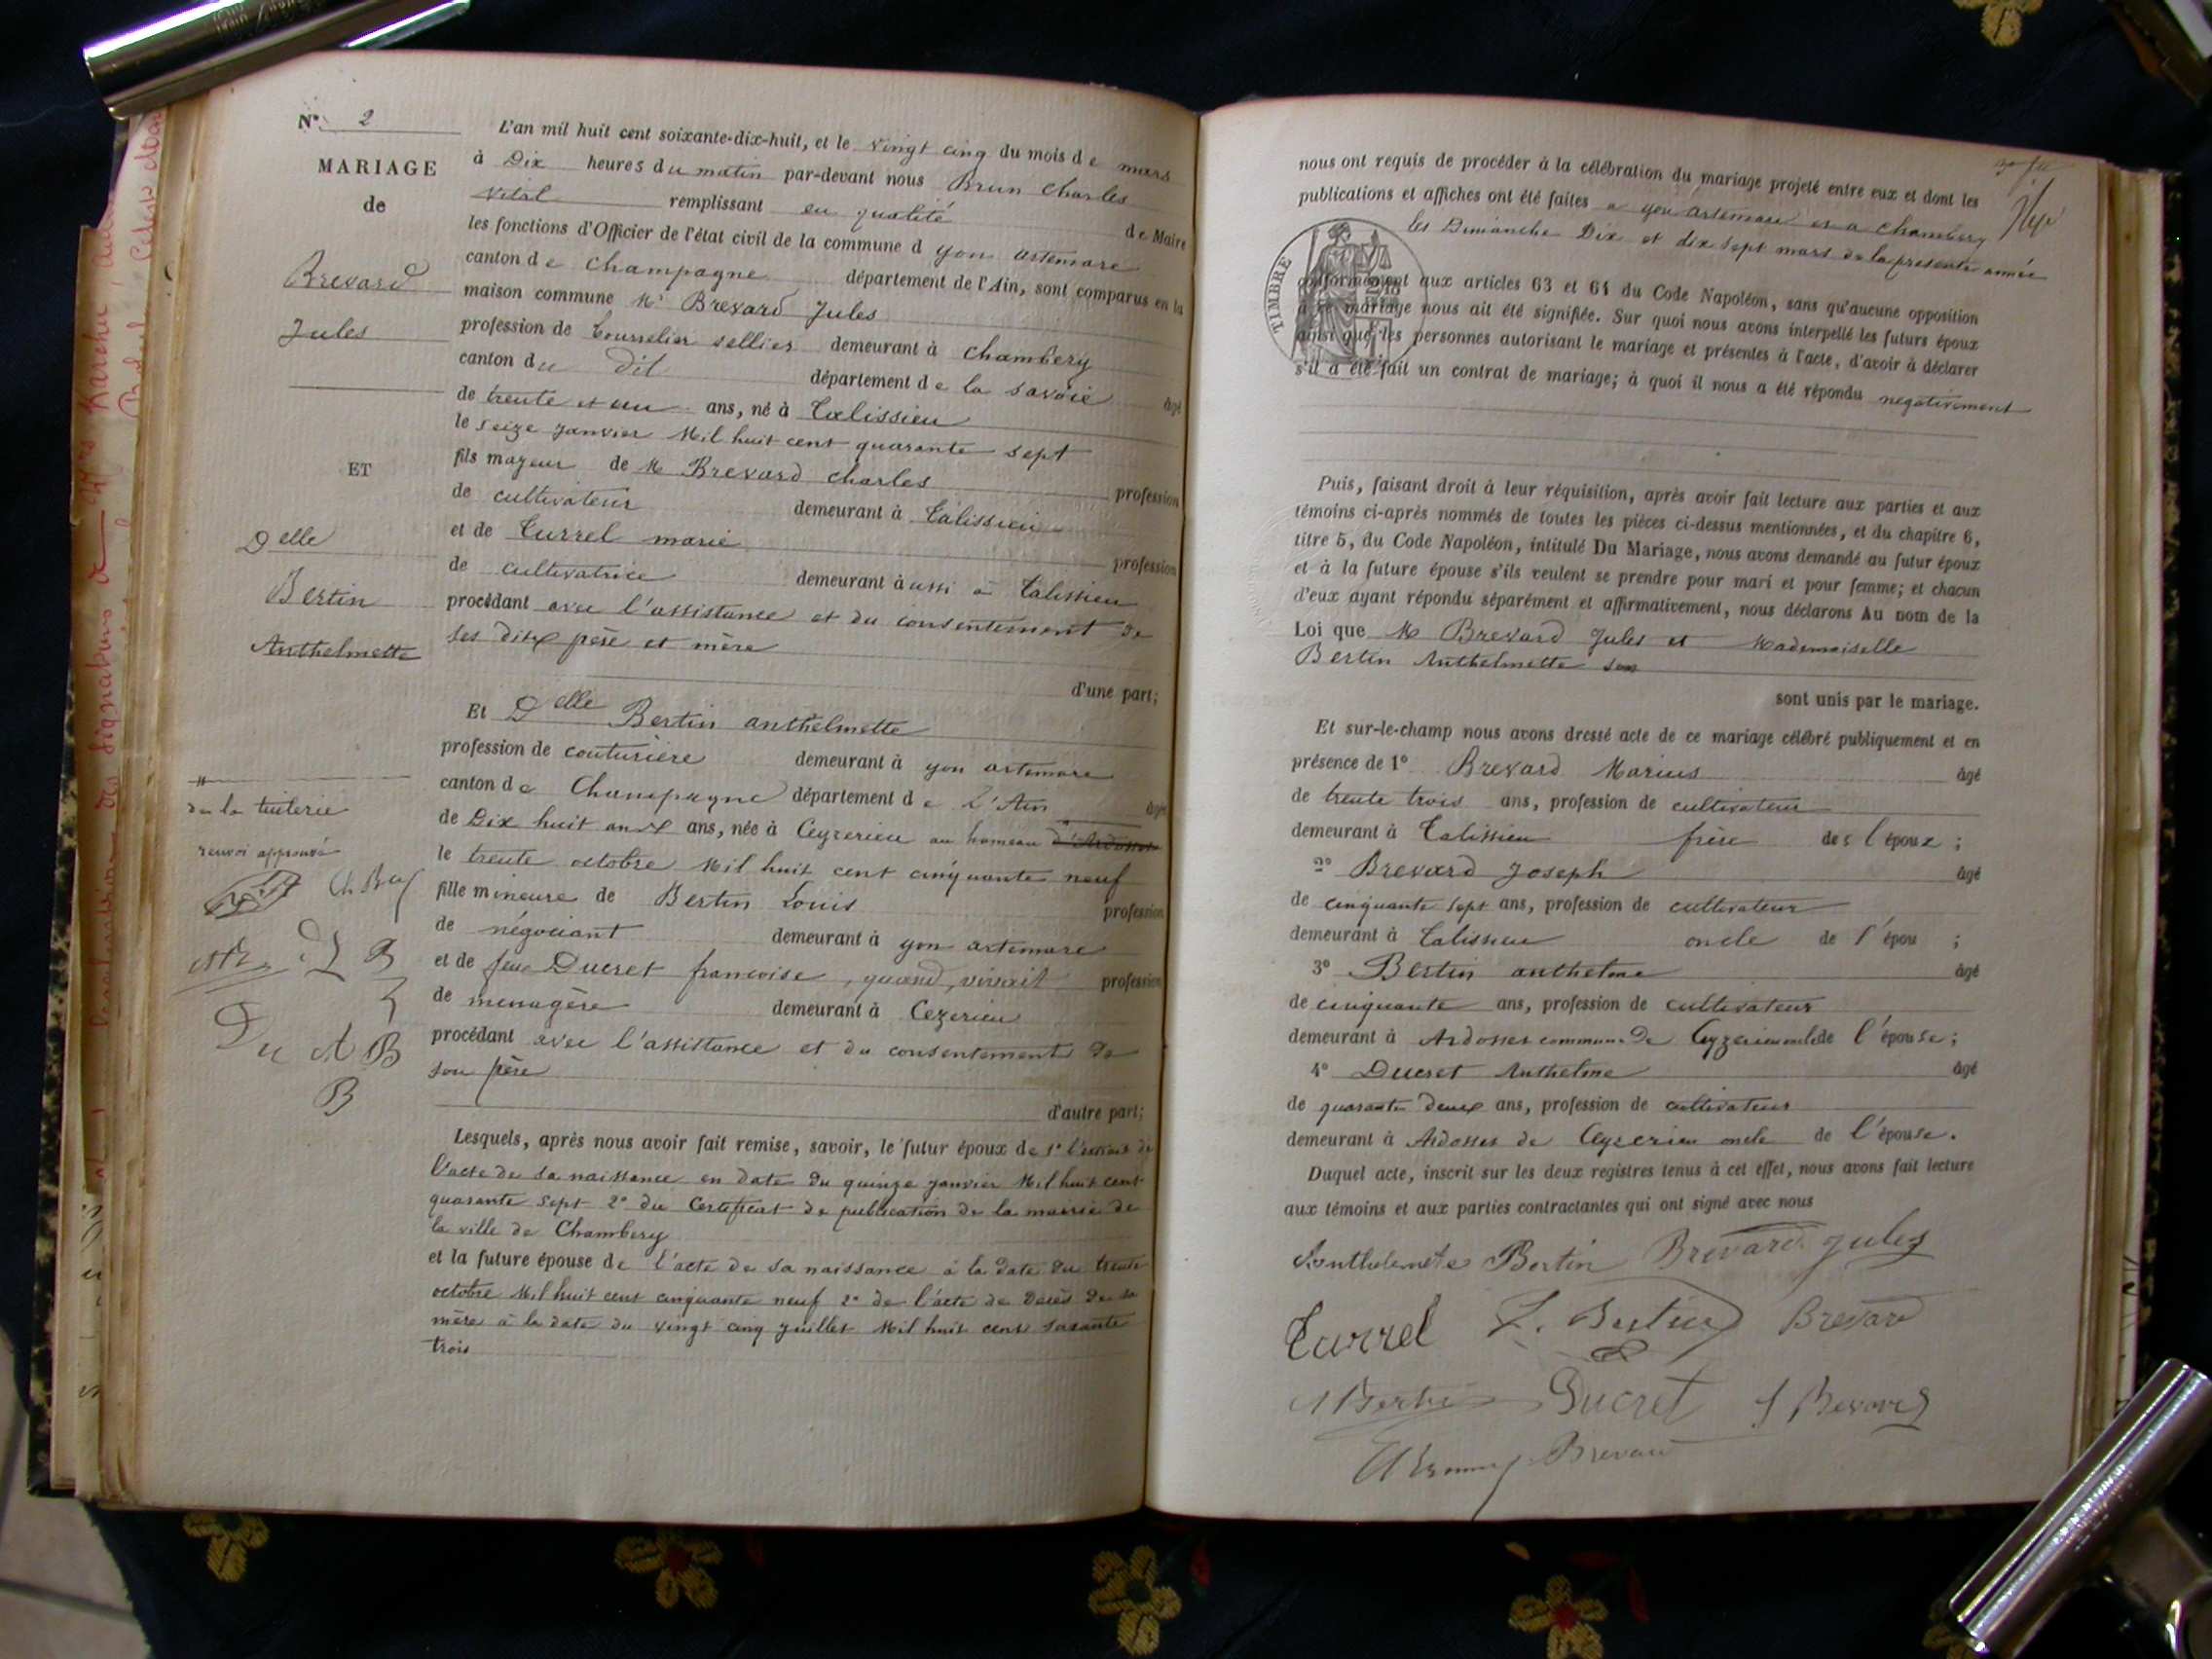 N° 2
MARIAGE
de
Brevard
Jules
ET
Delle
Bertin
Anthelmette
de la tuilerie
renvoi approuvé
L'an mil huit cent soixante-dix-huit, et le vingt cinq du mois de mars
à Dix heures du matin par-devant nous Brun Charles
Vital remplissant en qualité de Maire
les fonctions d'Officier de l'état civil de la commune d yon artemare
canton de Champagne département de l'Ain, sont comparus en la
maison commune Mr Brevard Jules
profession de bourrelier sellier demeurant à Chambery
canton du dit département de la Savoie âgé
de trente et un ans, né à Talissieu
le seize Janvier Mil huit cent quarante sept
fils majeur de M Brevard charles profession
de cultivateur demeurant à Talissieu
et de Turrel marie profession
de cultivatrice demeurant aussi à Talissieu
procédant avec l'assistance et du consentement de
ses dits père et mère
d'une part;
Et Delle Bertin anthelmette
profession de couturière demeurant à yon artemare
canton de Champagne département de L'Ain âgée
de Dix huit ans ans, née à Ceyzerieu au hameau d'Ardosset
le trente octobre Mil huit cent cinquante neuf
fille mineure de Bertin Louis profession
de négociant demeurant à yon artemare
et de feue Ducret francoise, quand, vivait profession
de menagère demeurant à Cezerieu
procédant avec l'assistance et du consentement de
son père
d'autre part;
Lesquels, après nous avoir fait remise, savoir, le futur époux de 1° l'extrait de
l'acte de sa naissance en date du quinze janvier Mil huit cent
quarante sept 2° du Certificat de publication de la mairie de
la ville de Chambery
et la future épouse de l'acte de sa naissance à la date du trente
octobre Mil huit cent cinquante neuf 2° de l'acte de décès de sa
mère à la date du vingt cinq Juillet Mil huit cent soixante
trois
nous ont requis de procéder à la célébration du mariage projeté entre eux et dont les
publications et affiches ont été faites a yon artemare et a Chambery
les Dimanche Dix et dix sept mars de la presente année
TIMBRE
conformément aux articles 63 et 64 du Code Napoléon, sans qu'aucune opposition
à ce mariage nous ait été signifiée. Sur quoi nous avons interpellé les futurs époux
ainsi que les personnes autorisant le mariage et présentes à l'acte, d'avoir à déclarer
s'il a été fait un contrat de mariage; à quoi il nous a été répondu negativement
Puis, faisant droit à leur réquisition, après avoir fait lecture aux parties et aux
témoins ci-après nommés de toutes les pièces ci-dessus mentionnées, et du chapitre 6,
titre 5, du Code Napoléon, intitulé Du Mariage, nous avons demandé au futur époux
et à la future épouse s'ils veulent se prendre pour mari et pour femme; et chacun
d'eux ayant répondu séparément et affirmativement, nous déclarons Au nom de la
Loi que M Brevard Jules et Mademoiselle
Bertin Anthelmette son
sont unis par le mariage.
Et sur-le-champ nous avons dressé acte de ce mariage célébré publiquement et en
présence de 1° Brevard Marius âgé
de trente trois ans, profession de cultivateur
demeurant à Talissieu frère de l'époux;
2° Brevard Joseph âgé
de cinquante sept ans, profession de cultivateur
demeurant à Talissieu oncle de l'épou;
3° Bertin anthelme âgé
de cinquante ans, profession de cultivateur
demeurant à Ardosset commune de Ceyzerieu oncle de l'épouse;
4° Ducret Anthelme âgé
de quarante deux ans, profession de cultivateur
demeurant à Ardosset de Ceyzerieu oncle de l'épouse.
Duquel acte, inscrit sur les deux registres tenus à cet effet, nous avons fait lecture
aux témoins et aux parties contractantes qui ont signé avec nous
Bertin Brevard Jules
Turrel L. Bertin Brevard
A Bertin Ducret J Brevard
Brevard